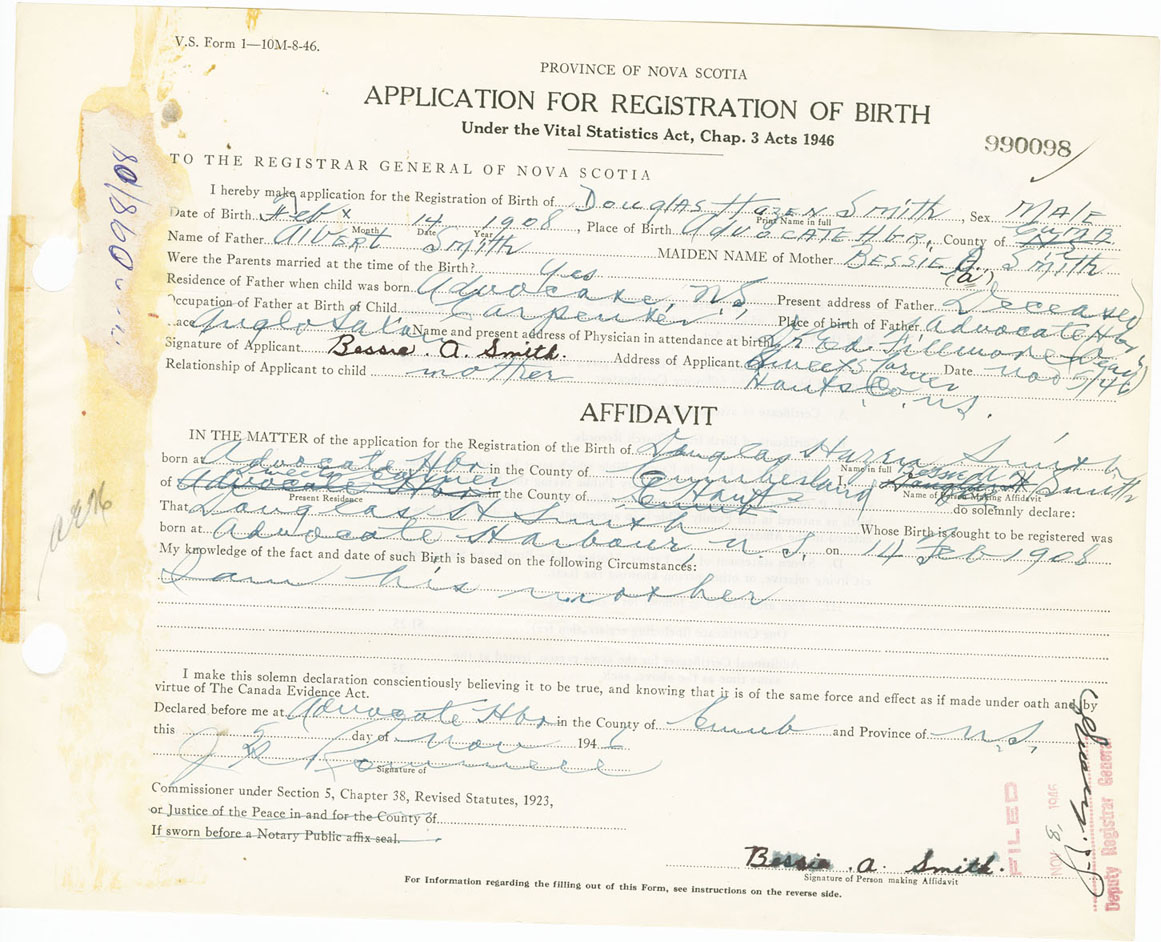 V.S. Form 1—10M-8-46.
PROVINCE OF NOVA SCOTIA
APPLICATION FOR REGISTRATION OF BIRTH
Under the Vital Statistics Act, Chap. 3 Acts 1946
990098
TO THE REGISTRAR GENERAL OF NOVA SCOTIA
I hereby make application for the Registration of Birth of Douglas Hazen Smith, Sex Male
Print Name in full
Date of Birth Feb 14 1908, Place of Birth Advocate Hbr, County of Cumb
Month Date Year
Name of Father Albert Smith MAIDEN NAME of Mother Bessie A. Smith
(a)
Were the Parents married at the time of the Birth? Yes
Residence of Father when child was born Advocate, N.S. Present address of Father Deceased
Occupation of Father at Birth of Child Carpenter Place of birth of Father Advocate Hbr
Race Anglo Name and present address of Physician in attendance at birth Dr Ed Fillmore (Dead)
Signature of Applicant Bessie. A. Smith. Address of Applicant Sweets Corner Date Nov 5/46
Relationship of Applicant to child mother Hants Co. N.S.
AFFIDAVIT
IN THE MATTER of the application for the Registration of the Birth of Douglas Hazen Smith
Name in full
born at Advocate Hbr in the County of Cumberland Smith
Sweets Corner
of Advocate Hbr in the County of Hants
Present Residence Name of Person Making Affidavit
Cumb do solemnly declare:
That Douglas H Smith Whose Birth is sought to be registered was
born at Advocate Harbour N.S. on 14 Feb 1908
My knowledge of the fact and date of such Birth is based on the following Circumstances:
I am his mother
I make this solemn declaration conscientiously believing it to be true, and knowing that it is of the same force and effect as if made under oath and by
virtue of The Canada Evidence Act.
Declared before me at Advocate Hbr in the County of Cumb and Province of N.S.
this day of Nov 1946
Signature of
Commissioner under Section 5, Chapter 38, Revised Statutes, 1923,
or Justice of the Peace in and for the County of
If sworn before a Notary Public affix seal.
FILED
NOV 8 1946
Deputy Registrar General
Bessie. A. Smith.
Signature of Person making Affidavit
For Information regarding the filling out of this Form, see instructions on the reverse side.